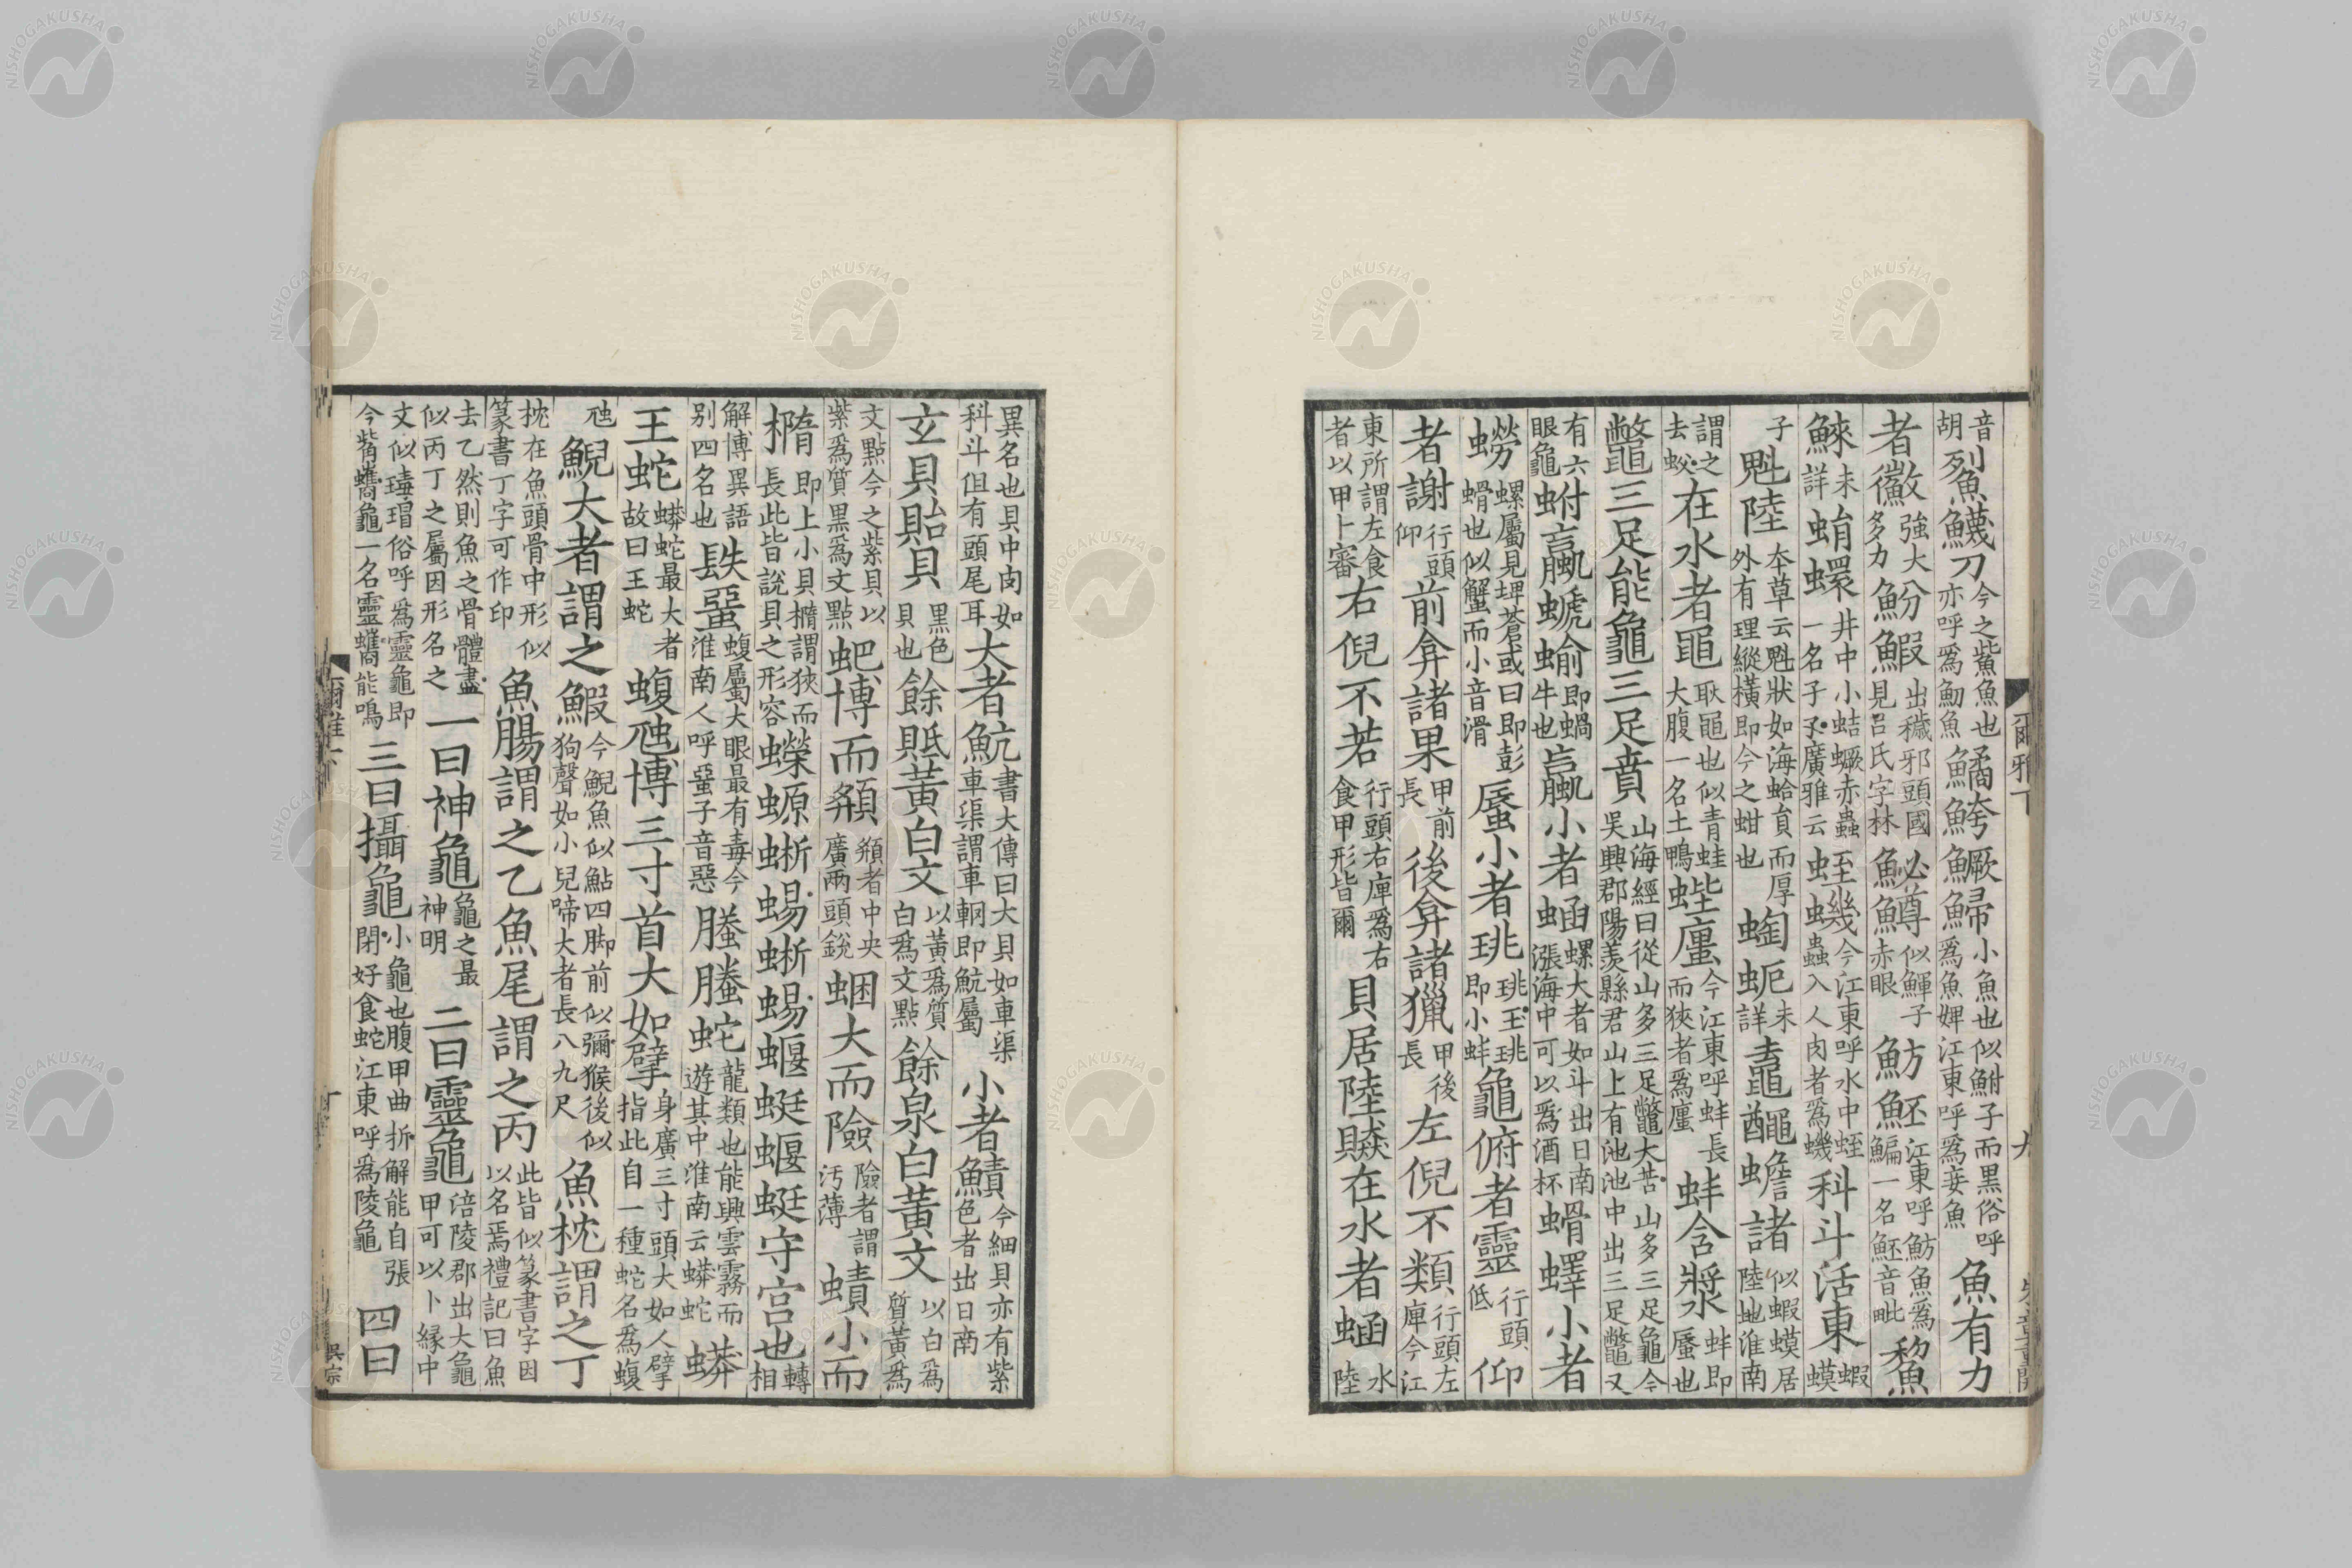 音胡鮤鱴刀今之鮆魚也亦呼爲魛魚鱊鮬鱖鯞小魚也似鮒子而黑俗呼爲魚婢江東呼爲妾魚魚有力
者徽強大多力魵鰕出穢邪頭國見呂氏字林鮅鱒似鯶子赤眼魴魾江東呼魴魚爲鯿一名魾音毗鯬
鯠未詳蜎蠉井中小蛣蟩赤蟲一名孑孓廣雅云蛭蟣今江東呼水中蛭蟲入人肉者爲蟣科斗活東蝦蟆
子魁陸本草云魁狀如海蛤員而厚外有理縱橫即今之蚶也蜪蚅未詳鼁𪓰蟾諸似蝦蟆居陸地淮南
謂之去蚥在水者黽耿黽也似青蛙大腹一名土鴨蜌螷今江東呼蚌長而狹者爲螷蚌含漿蚌即蜃也
鼈三足能龜三足賁山海經曰從山多三足鼈大苦山多三足龜今吳興郡陽羨縣君山上有池池中出三足鼈又
有六眼龜蚹蠃螔蝓即蝸牛也蠃小者蜬螺大者如斗出日南漲海中可以爲酒杯螖蠌小者
蟧螺屬見埤蒼或曰即彭螖也似蟹而小音滑蜃小者珧珧玉珧即小蚌龜俯者靈行頭低仰
者謝行頭仰前弇諸果甲前長後弇諸獵甲後長左倪不類行頭左庳今江
東所謂左食者以甲卜審右倪不若行頭右庳爲右食甲形皆爾貝居陸贆在水者蜬水陸
爾雅下
九
異名也貝中肉如科斗但有頭尾耳大者魧書大傳曰大貝如車渠車渠謂車輞即魧屬小者鰿今細貝亦有紫色者出日南
玄貝貽貝黑色貝也餘貾黃白文以黃爲質白爲文點餘泉白黃文以白爲質黃爲
文點今之紫貝以紫爲質黑爲文點蚆博而頯頯者中央廣兩頭銳蜠大而險險者謂汚薄蟦小而
橢即上小貝橢謂狹而長此皆說貝之形容蠑螈蜥蜴蜥蜴蝘蜓蝘蜓守宮也轉相
解博異語別四名也镻蝁蝮屬大眼最有毒今淮南人呼蝁子音惡螣螣蛇龍類也能興雲霧而遊其中淮南云蟒蛇蟒
王蛇蟒蛇最大者故曰王蛇蝮虺博三寸首大如擘身廣三寸頭大如人擘指此自一種蛇名爲蝮
虺鯢大者謂之鰕今鯢魚似鮎四脚前似獼猴後似狗聲如小兒啼大者長八九尺魚枕謂之丁
枕在魚頭骨中形似篆書丁字可作印魚腸謂之乙魚尾謂之丙此皆似篆書字因以名焉禮記曰魚
去乙然則魚之骨體盡似丙丁之屬因形名之一曰神龜龜之最神明二曰靈龜涪陵郡出大龜甲可以卜縁中
文似瑇瑁俗呼爲靈龜即今觜蠵龜一名靈蠵能鳴三曰攝龜小龜也腹甲曲折解能自張閉好食蛇江東呼爲陵龜四曰
十
吳宗